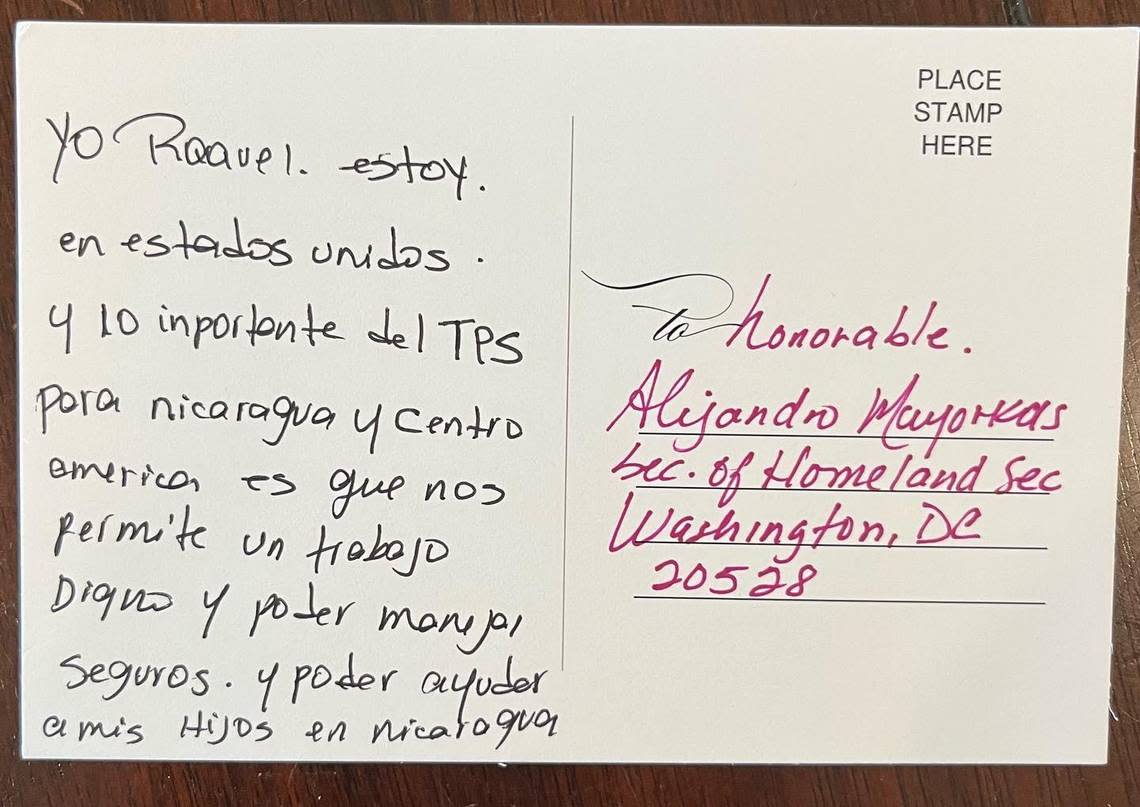 Yo Raquel. estoy.
en estados unidos.
y lo inportante del TPS
para nicaragua y Centro
america es que nos
permite un trabajo
Digno y poder manejar
seguros. y poder ayudar
a mis Hijos en nicaragua
PLACE
STAMP
HERE
To honorable.
Alijandro Mayorkas
Sec. of Homeland Sec
Washington, DC
20528